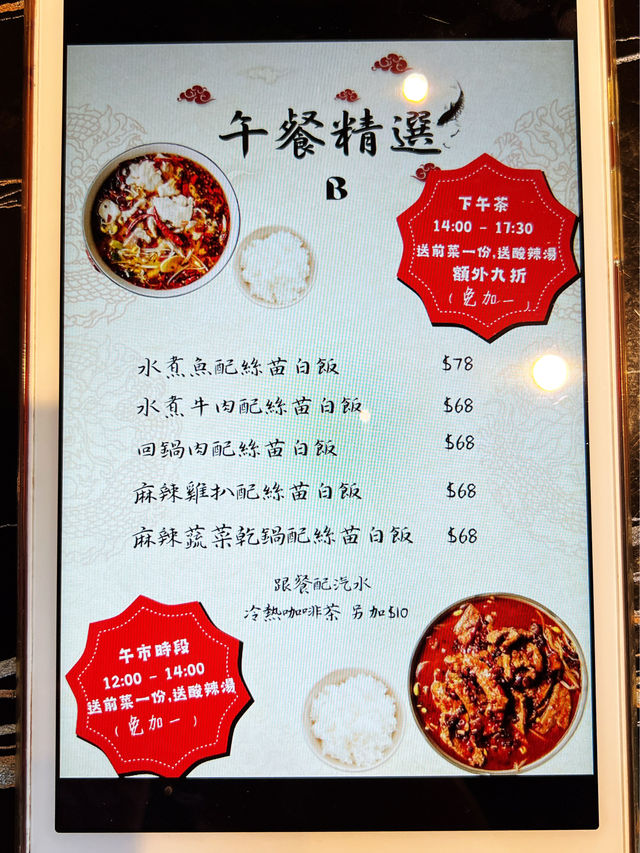 午餐精選
B
下午茶
14:00 - 17:30
送前菜一份,送酸辣湯
額外九折
(免加一)
水煮魚配絲苗白飯 $78
水煮牛肉配絲苗白飯 $68
回鍋肉配絲苗白飯 $68
麻辣雞扒配絲苗白飯 $68
麻辣蔬菜乾鍋配絲苗白飯 $68
跟餐配汽水
冷熱咖啡茶 另加$10
午市時段
12:00 - 14:00
送前菜一份,送酸辣湯
(免加一)